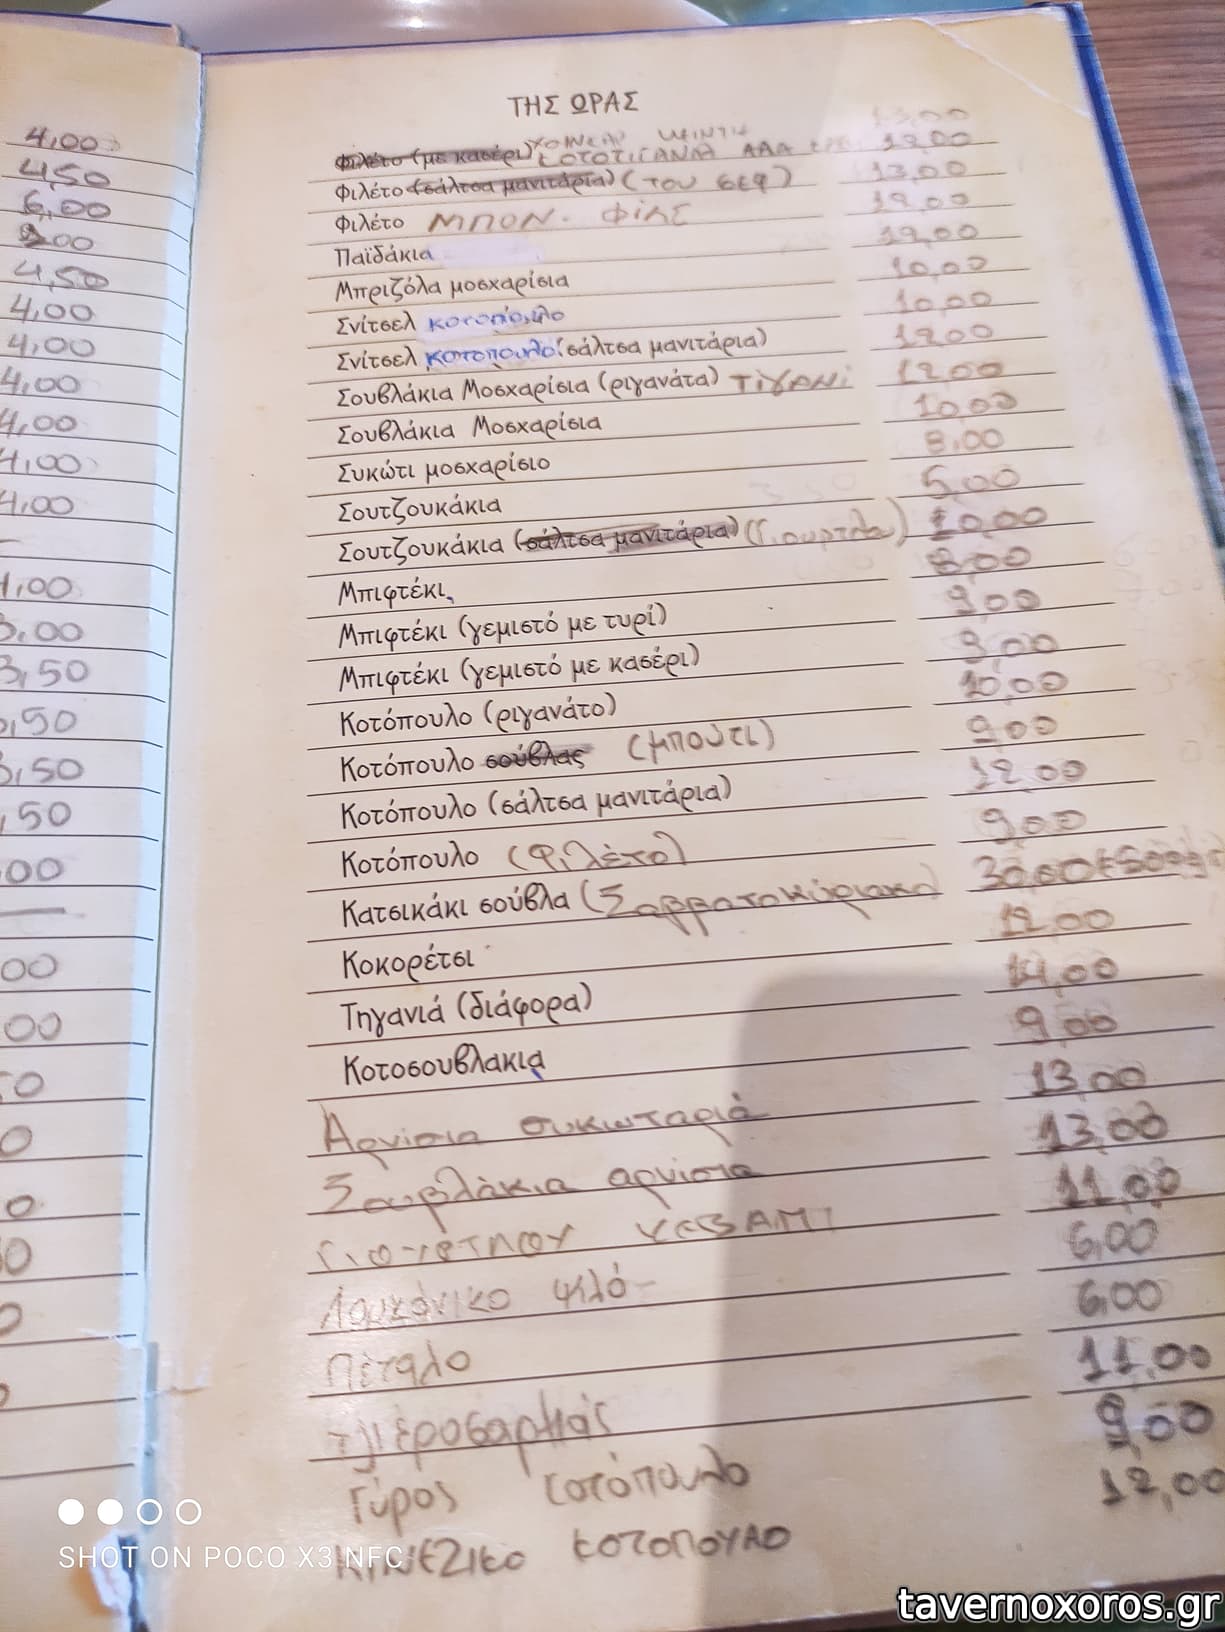 ΤΗΣ ΩΡΑΣ
4,00
4,50
6,00
4,50
4,00
4,00
4,00
4,00
4,00
4,00
13,00
Φιλέτο (με κασέρι) ΚΟΤΟΤΙΓΑΝΙΑ 12,00
Φιλέτο (σάλτσα μανιτάρια) (του σεφ) 13,00
Φιλέτο ΜΠΟΝ. ΦΙΛΕ 12,00
Παϊδάκια 12,00
Μπριζόλα μοσχαρίσια 10,00
Σνίτσελ κοτόπουλο 10,00
Σνίτσελ κοτοπουλο (σάλτσα μανιτάρια) 12,00
Σουβλάκια Μοσχαρίσια (ριγανάτα) ΤΙΓΑΝΙ 12,00
Σουβλάκια Μοσχαρίσια 10,00
Συκώτι μοσχαρίσιο 8,00
Σουτζουκάκια
Σουτζουκάκια (σάλτσα μανιτάρια) (Γιουρτλου) 10,00
Μπιφτέκι 8,00
Μπιφτέκι (γεμιστό με τυρί) 9,00
Μπιφτέκι (γεμιστό με κασέρι) 9,00
Κοτόπουλο (ριγανάτο) 10,00
Κοτόπουλο σούβλας (μπούτι) 9,00
Κοτόπουλο (σάλτσα μανιτάρια) 12,00
Κοτόπουλο (Φιλέτο) 9,00
Κατσικάκι σούβλα (Σαββατοκύριακο)
Κοκορέτσι 12,00
Τηγανιά (διάφορα) 14,00
Κοτοσουβλακια 9,00
Αρνίσια συκωταριά 13,00
Σουβλάκια αρνίσια 13,00
ΚΕΒΑΜΠ 11,00
Λουκάνικο ψιλό 6,00
Πέταλο 6,00
11,00
Γύρος κοτόπουλο 9,00
ΚΙΝΕΖΙΚΟ ΚΟΤΟΠΟΥΛΟ 12,00
SHOT ON POCO X3 NFC
tavernoxoros.gr